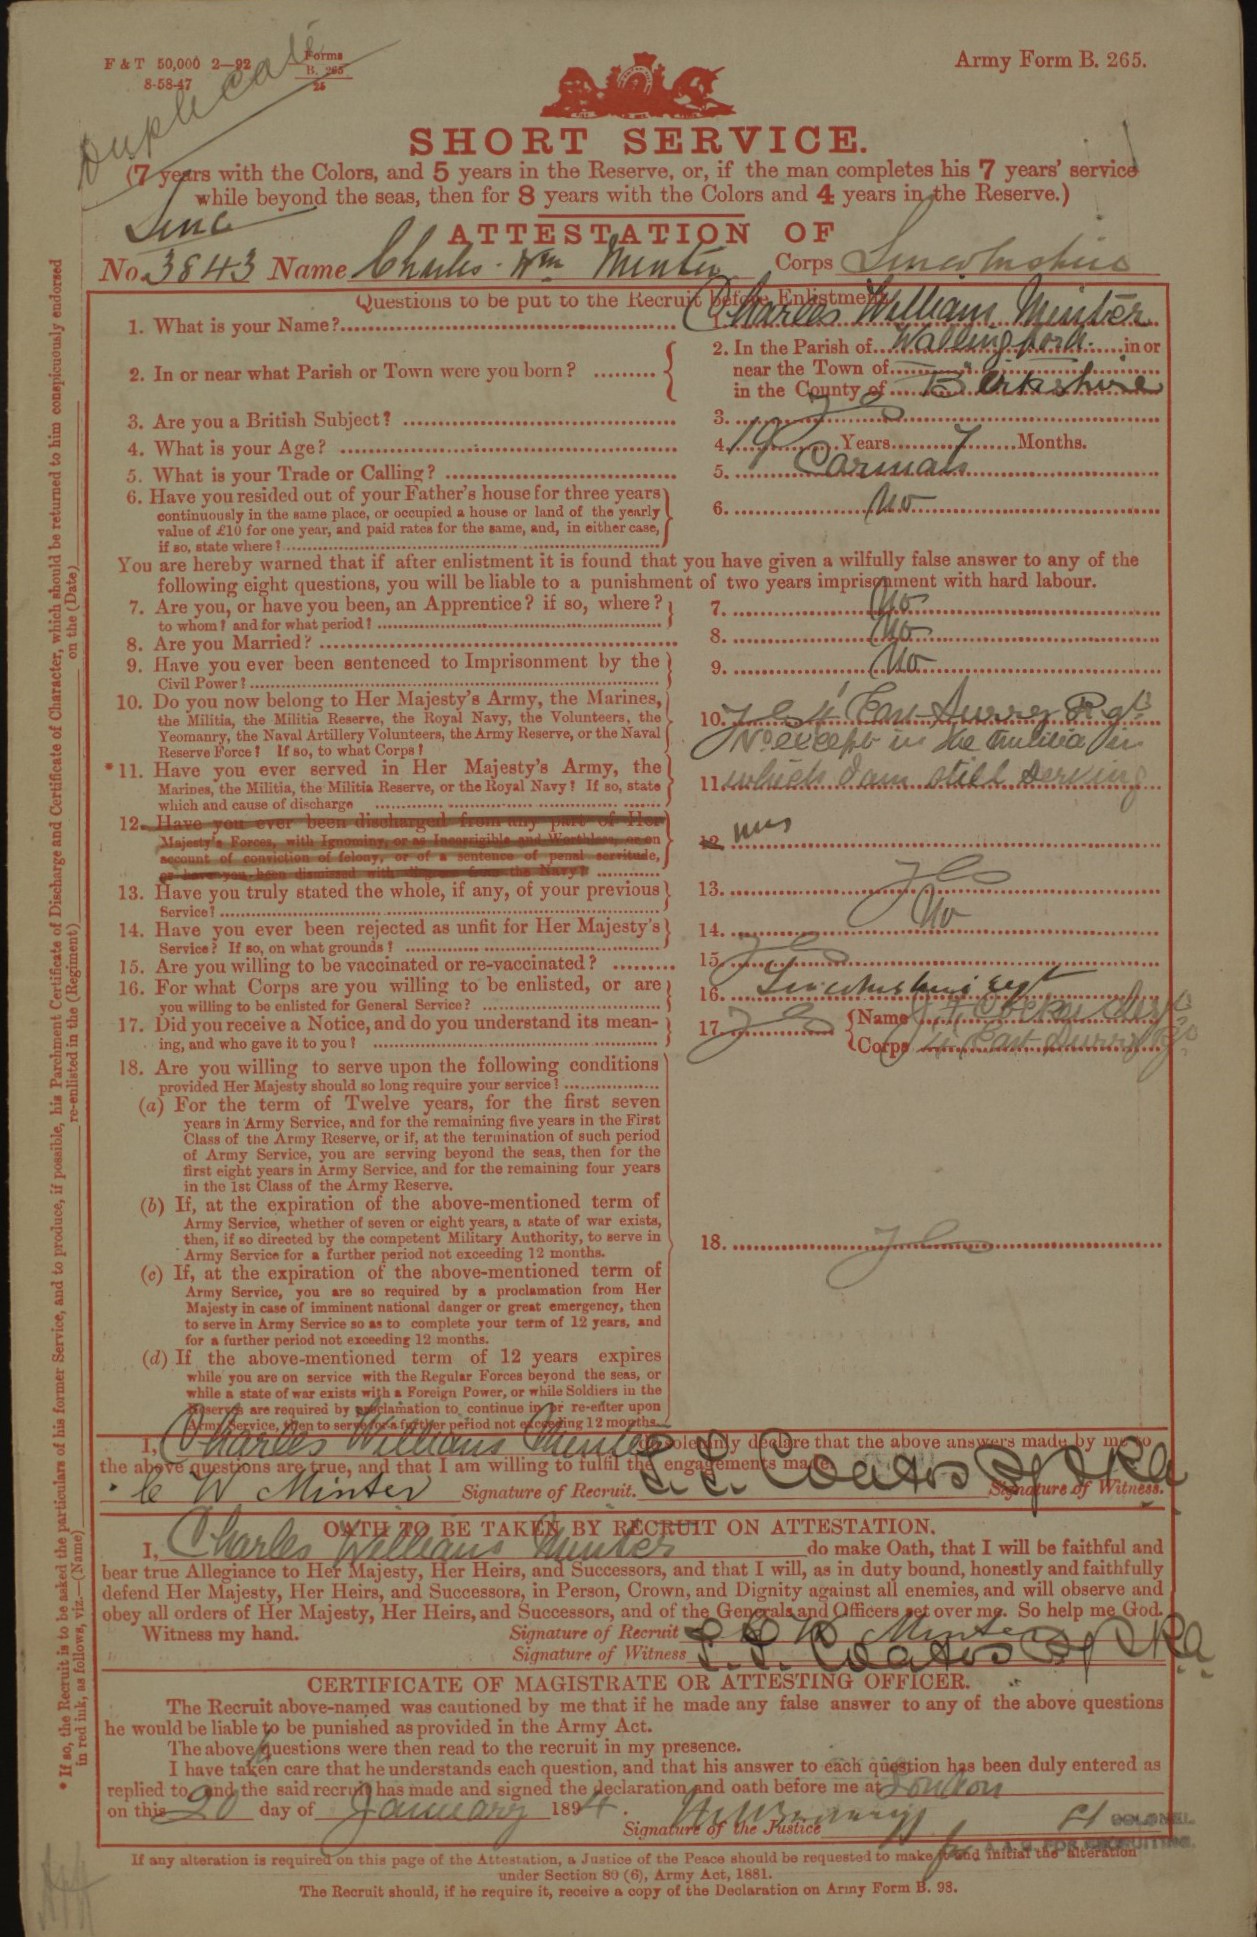 Duplicate
F & T 50,000 2—92
8-58-47
Forms
B. 265
25
Army Form B. 265.
SHORT SERVICE.
(7 years with the Colors, and 5 years in the Reserve, or, if the man completes his 7 years' service
while beyond the seas, then for 8 years with the Colors and 4 years in the Reserve.)
Linc
ATTESTATION OF
No. 3843 Name Charles Wm Minter Corps Lincolnshire
Questions to be put to the Recruit before Enlistment.
1. What is your Name? 1. Charles William Minter
2. In or near what Parish or Town were you born? 2. In the Parish of Wallingford in or
near the Town of
in the County of Berkshire
3. Are you a British Subject? 3. Yes
4. What is your Age? 4. 19 Years 7 Months.
5. What is your Trade or Calling? 5. Carman
6. Have you resided out of your Father's house for three years
continuously in the same place, or occupied a house or land of the yearly
value of £10 for one year, and paid rates for the same, and, in either case,
if so, state where? 6. No
You are hereby warned that if after enlistment it is found that you have given a wilfully false answer to any of the
following eight questions, you will be liable to a punishment of two years imprisonment with hard labour.
7. Are you, or have you been, an Apprentice? if so, where?
to whom? and for what period? 7. No
8. Are you Married? 8. No
9. Have you ever been sentenced to Imprisonment by the
Civil Power? 9. No
10. Do you now belong to Her Majesty's Army, the Marines,
the Militia, the Militia Reserve, the Royal Navy, the Volunteers, the
Yeomanry, the Naval Artillery Volunteers, the Army Reserve, or the Naval
Reserve Force? If so, to what Corps? 10. Yes 4 East Surrey Rgt
*11. Have you ever served in Her Majesty's Army, the
Marines, the Militia, the Militia Reserve, or the Royal Navy? If so, state
which and cause of discharge 11. No except in the Militia in
which I am still serving
12. Have you ever been discharged from any part of Her
Majesty's Forces, with Ignominy, or as Incorrigible and Worthless, or on
account of conviction of felony, or of a sentence of penal servitude,
or have you been dismissed with disgrace from the Navy? 12
13. Have you truly stated the whole, if any, of your previous
Service? 13. Yes
14. Have you ever been rejected as unfit for Her Majesty's
Service? If so, on what grounds? 14. No
15. Are you willing to be vaccinated or re-vaccinated? 15. Yes
16. For what Corps are you willing to be enlisted, or are
you willing to be enlisted for General Service? 16. Lincolnshire Regt
17. Did you receive a Notice, and do you understand its mean-
ing, and who gave it to you? 17. Yes Name
Corps 4 East Surrey Rgt
18. Are you willing to serve upon the following conditions
provided Her Majesty should so long require your service?
(a) For the term of Twelve years, for the first seven
years in Army Service, and for the remaining five years in the First
Class of the Army Reserve, or if, at the termination of such period
of Army Service, you are serving beyond the seas, then for the
first eight years in Army Service, and for the remaining four years
in the 1st Class of the Army Reserve.
(b) If, at the expiration of the above-mentioned term of
Army Service, whether of seven or eight years, a state of war exists,
then, if so directed by the competent Military Authority, to serve in
Army Service for a further period not exceeding 12 months.
18. Yes
(c) If, at the expiration of the above-mentioned term of
Army Service, you are so required by a proclamation from Her
Majesty in case of imminent national danger or great emergency, then
to serve in Army Service so as to complete your term of 12 years, and
for a further period not exceeding 12 months.
(d) If the above-mentioned term of 12 years expires
while you are on service with the Regular Forces beyond the seas, or
while a state of war exists with a Foreign Power, or while Soldiers in the
Reserve are required by proclamation to continue in or re-enter upon
Army Service, then to serve for a further period not exceeding 12 months.
I, Charles William Minter do solemnly declare that the above answers made by me to
the above questions are true, and that I am willing to fulfil the engagements made.
C W Minter Signature of Recruit. Coates Signature of Witness.
OATH TO BE TAKEN BY RECRUIT ON ATTESTATION.
I, Charles William Minter do make Oath, that I will be faithful and
bear true Allegiance to Her Majesty, Her Heirs, and Successors, and that I will, as in duty bound, honestly and faithfully
defend Her Majesty, Her Heirs, and Successors, in Person, Crown, and Dignity against all enemies, and will observe and
obey all orders of Her Majesty, Her Heirs, and Successors, and of the Generals and Officers set over me. So help me God.
Witness my hand. Signature of Recruit C W Minter
Signature of Witness Coates
CERTIFICATE OF MAGISTRATE OR ATTESTING OFFICER.
The Recruit above-named was cautioned by me that if he made any false answer to any of the above questions
he would be liable to be punished as provided in the Army Act.
The above questions were then read to the recruit in my presence.
I have taken care that he understands each question, and that his answer to each question has been duly entered as
replied to, and the said recruit has made and signed the declaration and oath before me at London
on this 20 day of January 1894.
Signature of the Justice
COLONEL
A.A.G. FOR RECRUITING.
If any alteration is required on this page of the Attestation, a Justice of the Peace should be requested to make it and initial the alteration
under Section 80 (6), Army Act, 1881.
The Recruit should, if he require it, receive a copy of the Declaration on Army Form B. 98.
* If so, the Recruit is to be asked the particulars of his former Service, and to produce, if possible, his Parchment Certificate of Discharge and Certificate of Character, which should be returned to him conspicuously endorsed
in red ink, as follows, viz.—(Name) re-enlisted in the (Regiment) on the (Date)